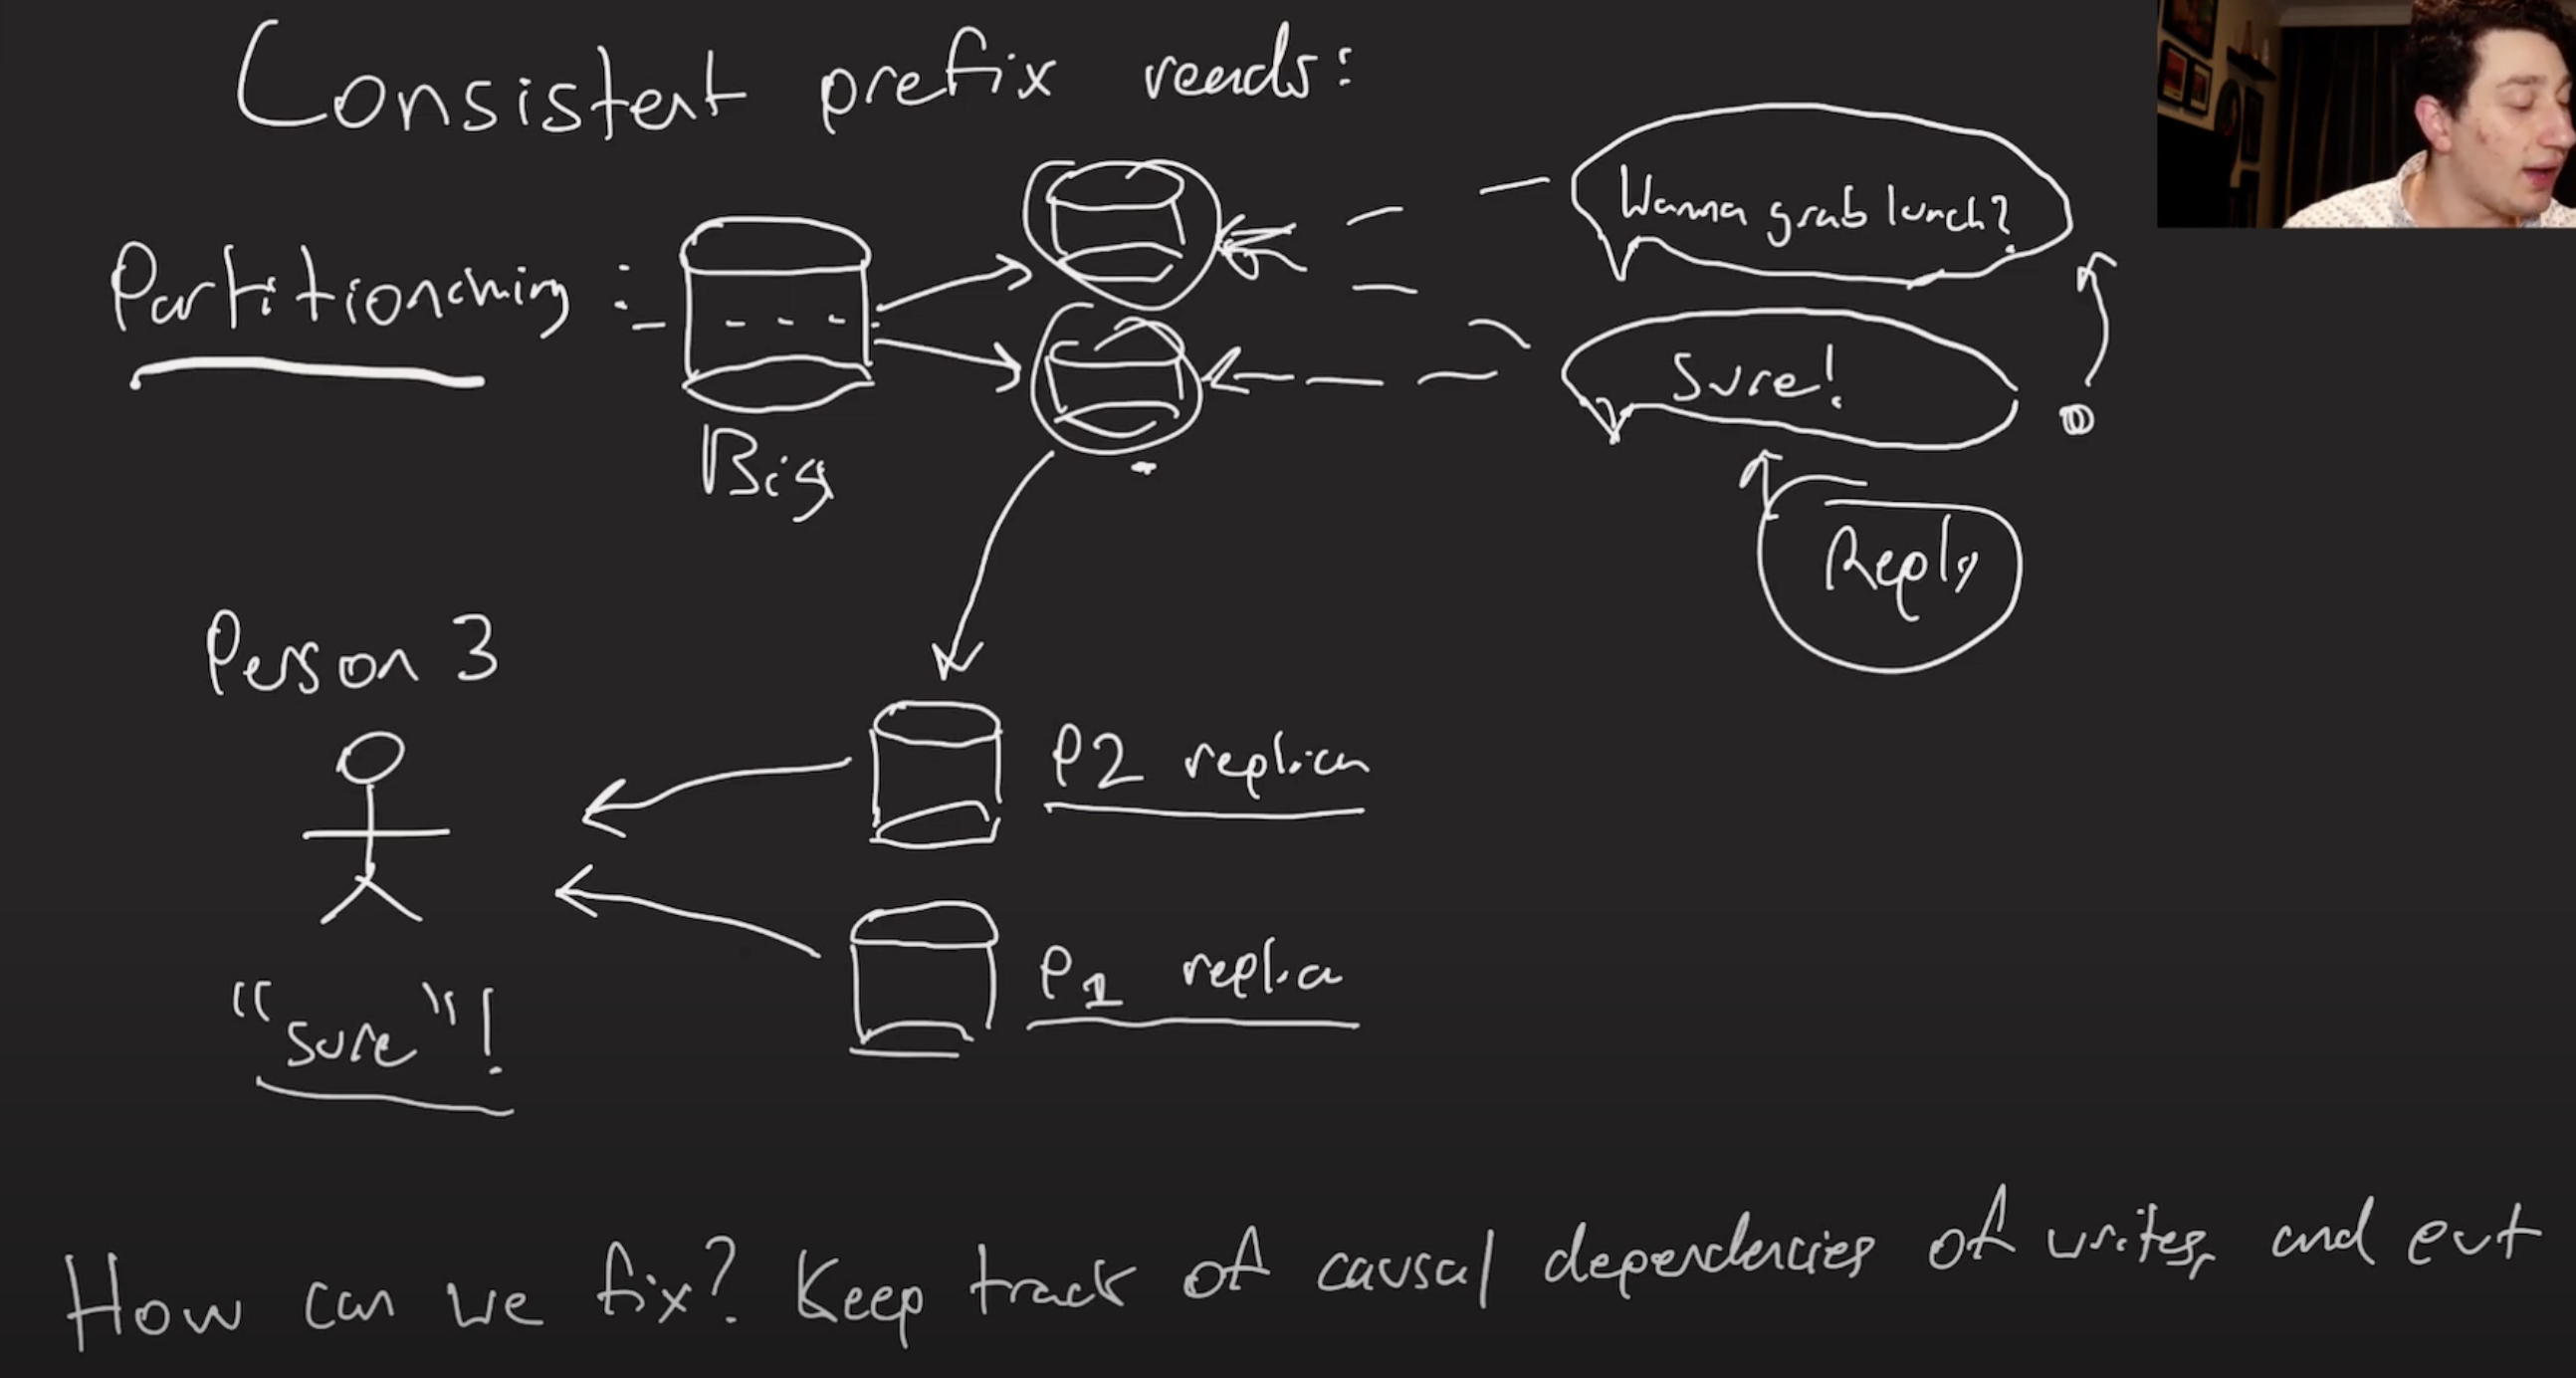 Consistent prefix reads:
Partitioning:
Big
Wanna grab lunch?
Sure!
Reply
Person 3
P2 replica
P1 replica
"sure"!
How can we fix? Keep track of causal dependencies of writes, and put